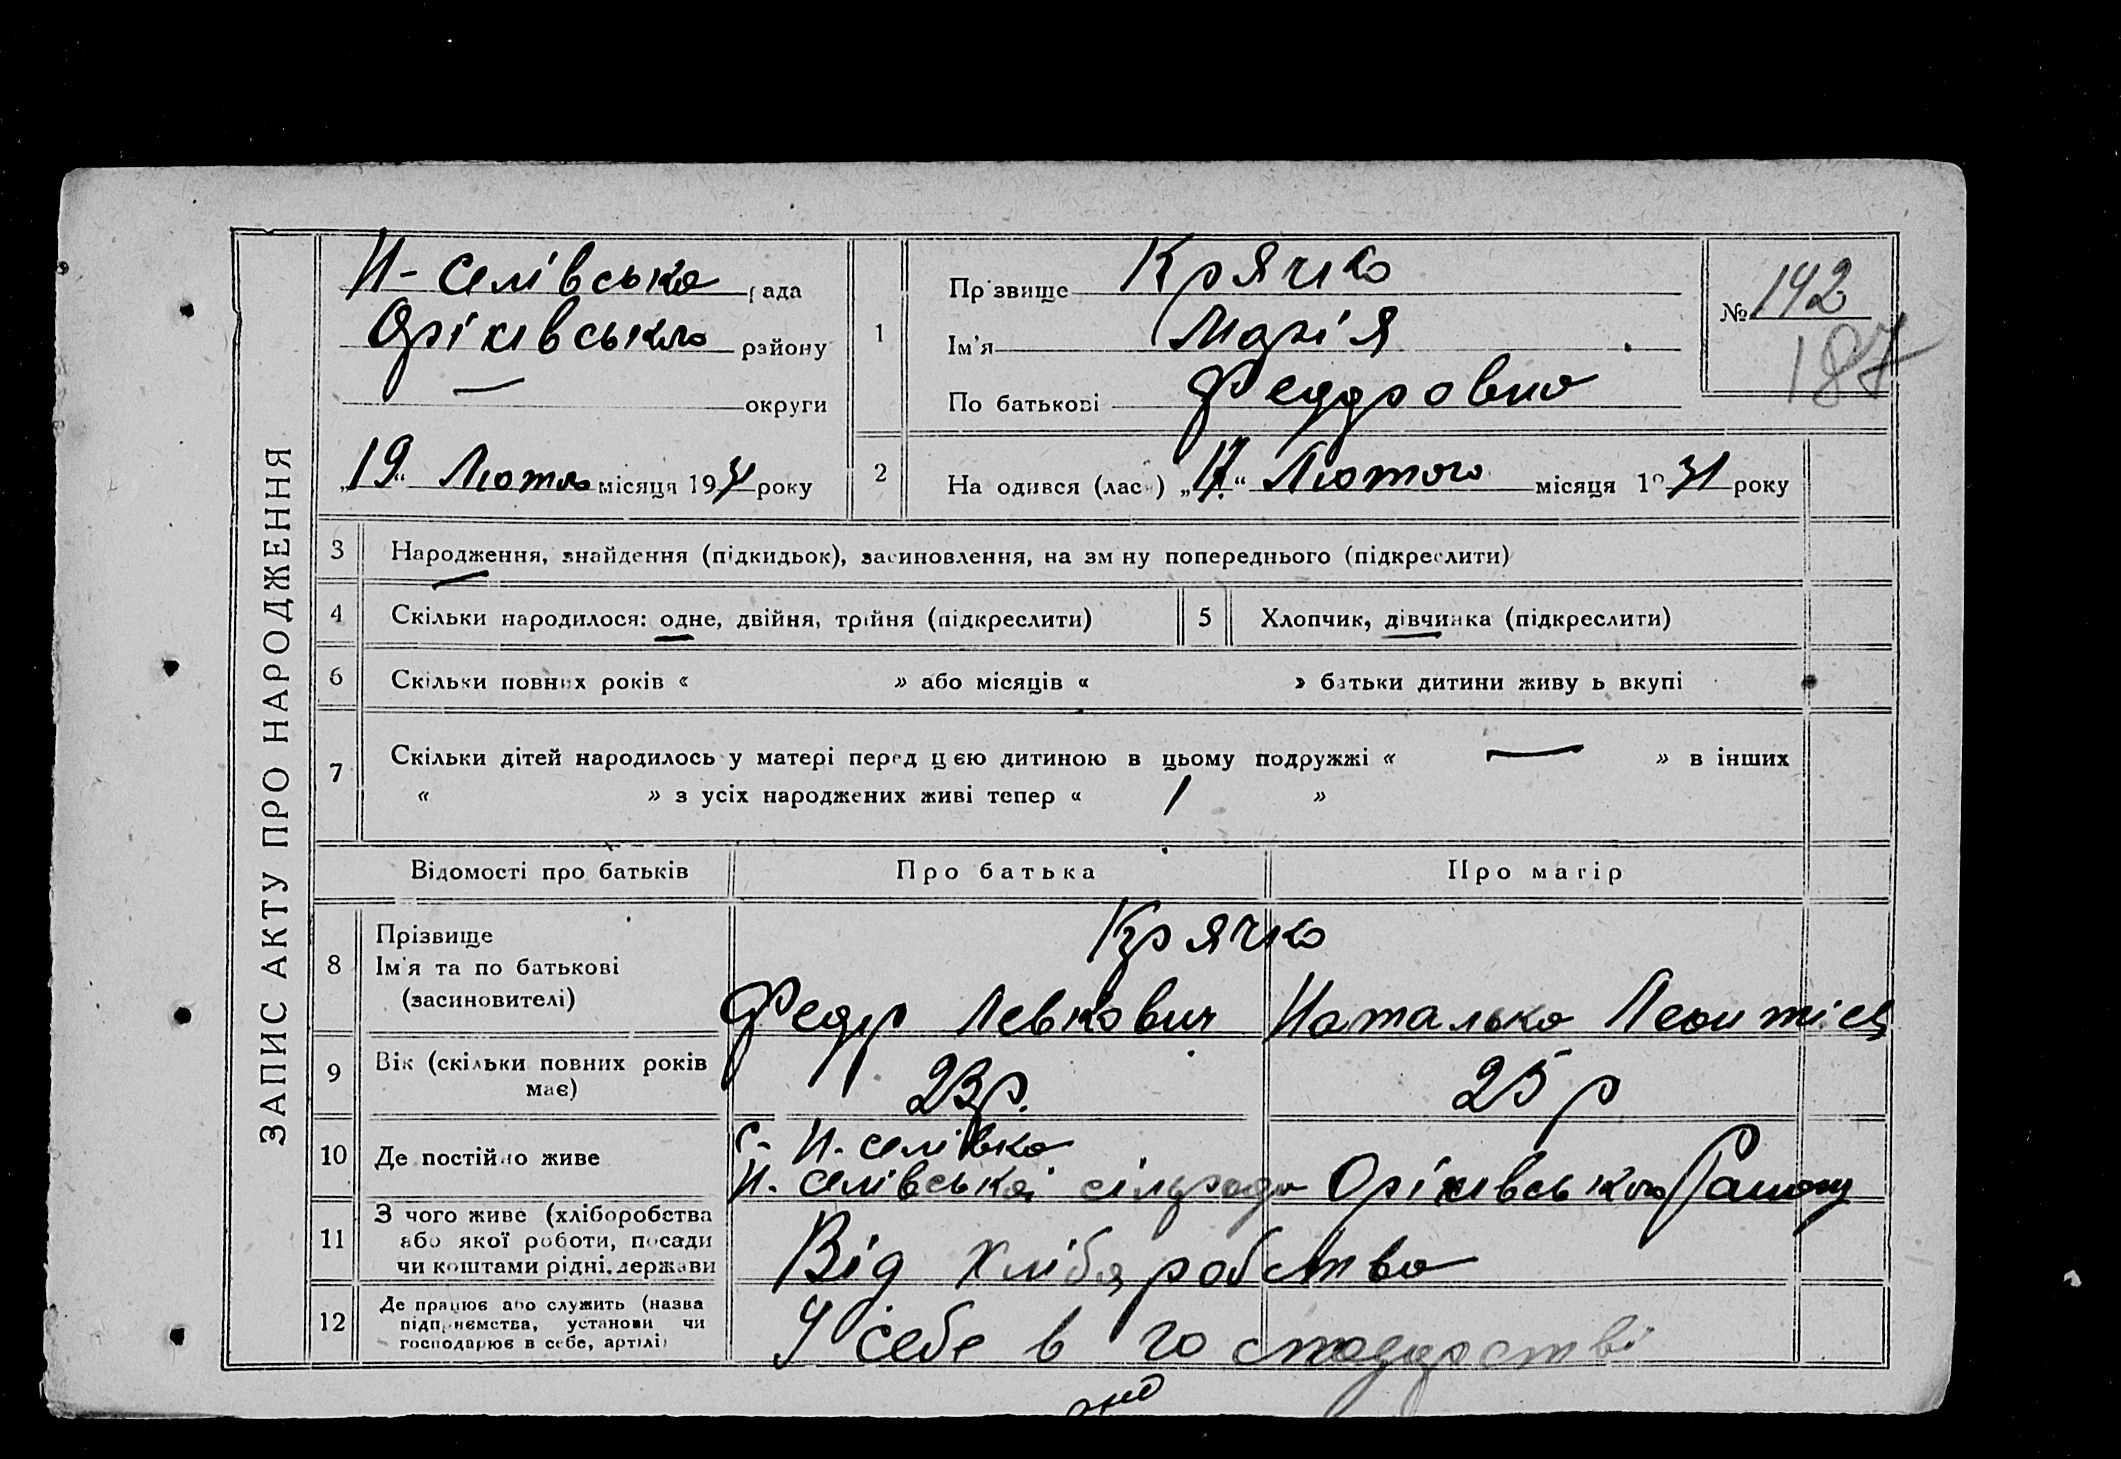 ЗАПИС АКТУ ПРО НАРОДЖЕННЯ
Н-Селівська рада
Оріхівського району
— округи
„19“ Лютого місяця 1931 року
1
Прізвище Крячко
Ім'я Марія
По батькові Федоровна
№ 142
187
2
На одився (лась) „17“ Лютого місяця 1931 року
3 Народження, знайдення (підкидьок), засиновлення, на зміну попереднього (підкреслити)
4 Скільки народилося: одне, двійня, трійня (підкреслити)
5 Хлопчик, дівчинка (підкреслити)
6 Скільки повних років « » або місяців « » батьки дитини живу ь вкупі
7 Скільки дітей народилось у матері перед цією дитиною в цьому подружжі « — » в інших
« » з усіх народжених живі тепер « 1 »
Відомості про батьків Про батька Про матір
8 Прізвище
Ім'я та по батькові
(засиновителі)
Крячко
Федір Левкович Наталька Леонтієв
9 Вік (скільки повних років
має)
23р. 25 р
10 Де постійно живе
с- Н. Селівка
Н. Селівської сільради Оріхівського Району
11 З чого живе (хліборобства
або якої роботи, посади
чи коштами рідні, держави
Від Хлібаробства
12 Де працює або служить (назва
підприємства, установи чи
господарює в себе, артілі)
У себе в господарстві